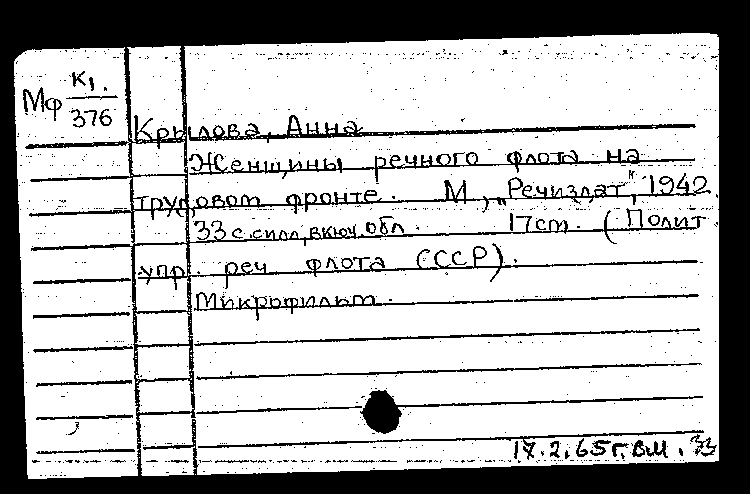 Мф К1.
376
Крылова, Анна
Женщины речного флота на
трудовом фронте. М, „Речиздат", 1942.
33 с. с илл, включ. обл. 17 cm. (Полит
упр. реч флота СССР).
Микрофильм.
17.2.65 г. ВМ. 33